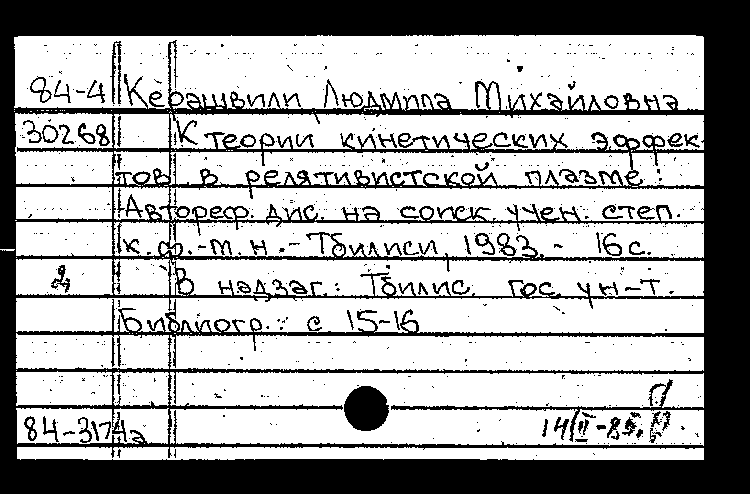 84-4 Керашвили Людмила Михайловна
30268 К теории кинетических эффек-
тов в релятивистской плазме:
Автореф. дис. на соиск. учен. степ.
к.ф.-м.н. - Тбилиси, 1983. - 16 с.
2 В надзаг.: Тбилис. гос. ун-т.
Библиогр.: с 15-16
84-3174а 14/II-85.